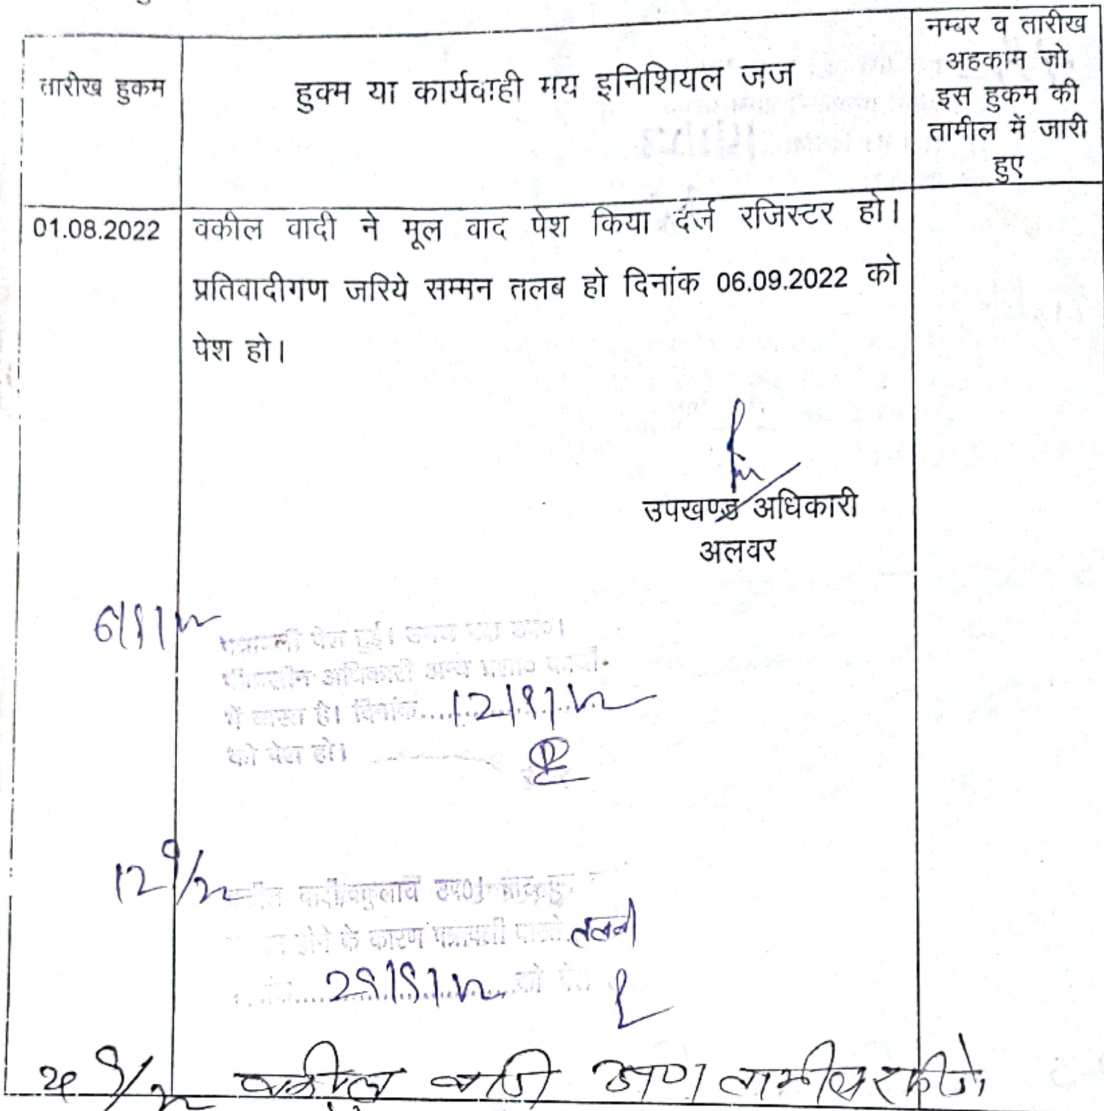 तारीख हुकम
हुक्म या कार्यवाही मय इनिशियल जज
नम्बर व तारीख
अहकाम जो
इस हुकम की
तामील में जारी
हुए
01.08.2022
वकील वादी ने मूल वाद पेश किया दर्ज रजिस्टर हो।
प्रतिवादीगण जरिये सम्मन तलब हो दिनांक 06.09.2022 को
पेश हो।
उपखण्ड अधिकारी
अलवर
पेश हुई।
अधिकारी अन्य
में व्यस्त है। दिनांक.....12/9/22
को पेश हो।
12 9/22
होने के कारण पत्रावली वास्ते तलबी
को पेश
वकील वादी